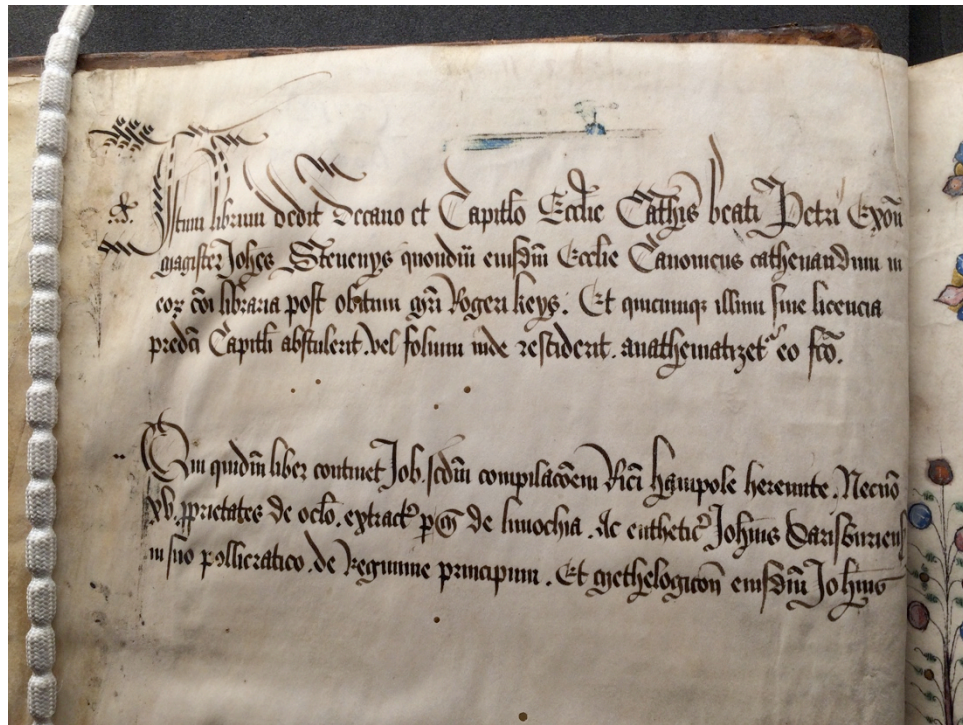 Istum librum dedit Decano et Capitlo Ecclie Cathis beati Petri Exon
magister Johes Stevenys quondm eiusdm Ecclie Canonicus cathenandum in
eoꝝ coi libraria post obitum gri Rogeri keys. Et quicunqꝫ illum sine licencia
predci Capitli abstulerit vel folium inde resciderit. anathematizet eo fco.
Qui quidm liber continet Job. scdm compilacoem Rici hampole heremite. Necno
xv. pprietates de oclo. extract de limochia. Ac euthetic Johnis Sarisburiens
in suo pollicratico. de Regimine principum. Et methologicon eiusdm Johnis